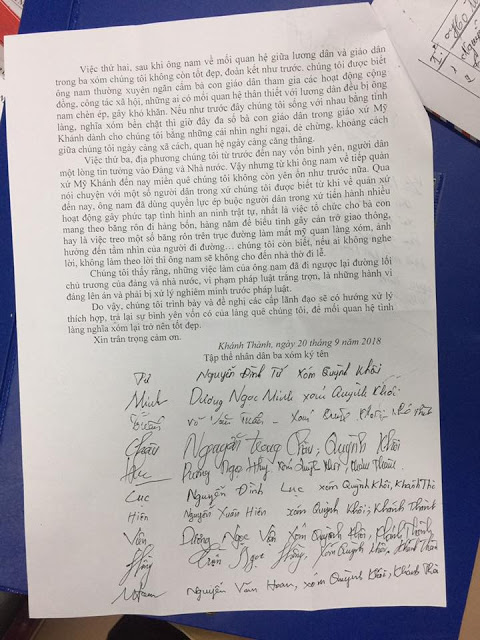 Việc thứ hai, sau khi ông nam về mối quan hệ giữa lương dân và giáo dân
trong ba xóm chúng tôi không còn tốt đẹp, đoàn kết như trước. chúng tôi được biết
ông nam thường xuyên ngăn cấm bà con giáo dân tham gia các hoạt động cộng
đồng, công tác xã hội, những ai có mối quan hệ thân thiết với lương dân đều bị ông
nam chèn ép, gây khó khăn. Nếu như trước đây chúng tôi sống với nhau bằng tình
làng, nghĩa xóm bền chặt thì giờ đây đa số bà con giáo dân trong giáo xứ Mỹ
Khánh dành cho chúng tôi bằng những cái nhìn nghi ngại, dè chừng, khoảng cách
giữa chúng tôi ngày càng xã cách, quan hệ ngày càng căng thẳng.
Việc thứ ba, địa phương chúng tôi từ trước đến nay vốn bình yên, người dân
một lòng tin tưởng vào Đảng và Nhà nước. Vậy nhưng từ khi ông nam về tiếp quản
xứ Mỹ Khánh đến nay miền quê chúng tôi không còn yên ổn như trước nữa. Qua
nói chuyện với một số người dân trong xứ chúng tôi được biết từ khi về quản xứ
đến nay, ông nam đã dùng quyền lực ép buộc người dân trong xứ tiến hành nhiều
hoạt động gây phức tạp tình hình an ninh trật tự, nhất là việc tổ chức cho bà con
mang theo băng rôn đi hàng bốn, hàng năm để biểu tình gây cản trở giao thông,
hay là việc treo một số băng rôn trên trục đường làm mất mỹ quan làng xóm, ảnh
hưởng đến tầm nhìn của người đi đường… chúng tôi còn biết, nếu ai không nghe
lời, không làm theo lời thì ông nam sẽ không cho đến nhà thờ đi lễ.
Chúng tôi thấy rằng, những việc làm của ông nam đã đi ngược lại đường lối
chủ trương của đảng và nhà nước, vi phạm pháp luật trắng trợn, là những hành vi
đáng lên án và phải bị xử lý nghiêm minh trước pháp luật.
Do vậy, chúng tôi trình bày và đề nghị các cấp lãnh đạo sẽ có hướng xử lý
thích hợp, trả lại sự bình yên vốn có của làng quê chúng tôi, để mối quan hệ tình
làng nghĩa xóm lại trở nên tốt đẹp.
Xin trân trọng cảm ơn.
Khánh Thành, ngày 20 tháng 9 năm 2018
Tập thể nhân dân ba xóm ký tên
Tứ Nguyễn Đình Tứ xóm Quỳnh Khôi
Minh Dương Ngọc Minh xóm Quỳnh Khôi
Tuấn Võ Văn Tuấn - Xóm
Nguyễn Trọng Quỳnh Khôi
Dương Ngọc Huy xóm
Lục Nguyễn Đình Lục xóm Quỳnh Khôi, Khánh Thà
Hiên Nguyễn Xuân Hiên xóm Quỳnh Khôi, Khánh Thành
Vận Dương Ngọc Vận Xóm Quỳnh Khôi, Khánh Thành
Hồng Trần Ngọc Hồng, Xóm Quỳnh Khôi, Khánh Thàn
Nguyễn Văn Hoan, xóm Quỳnh Khôi, Khánh Thà